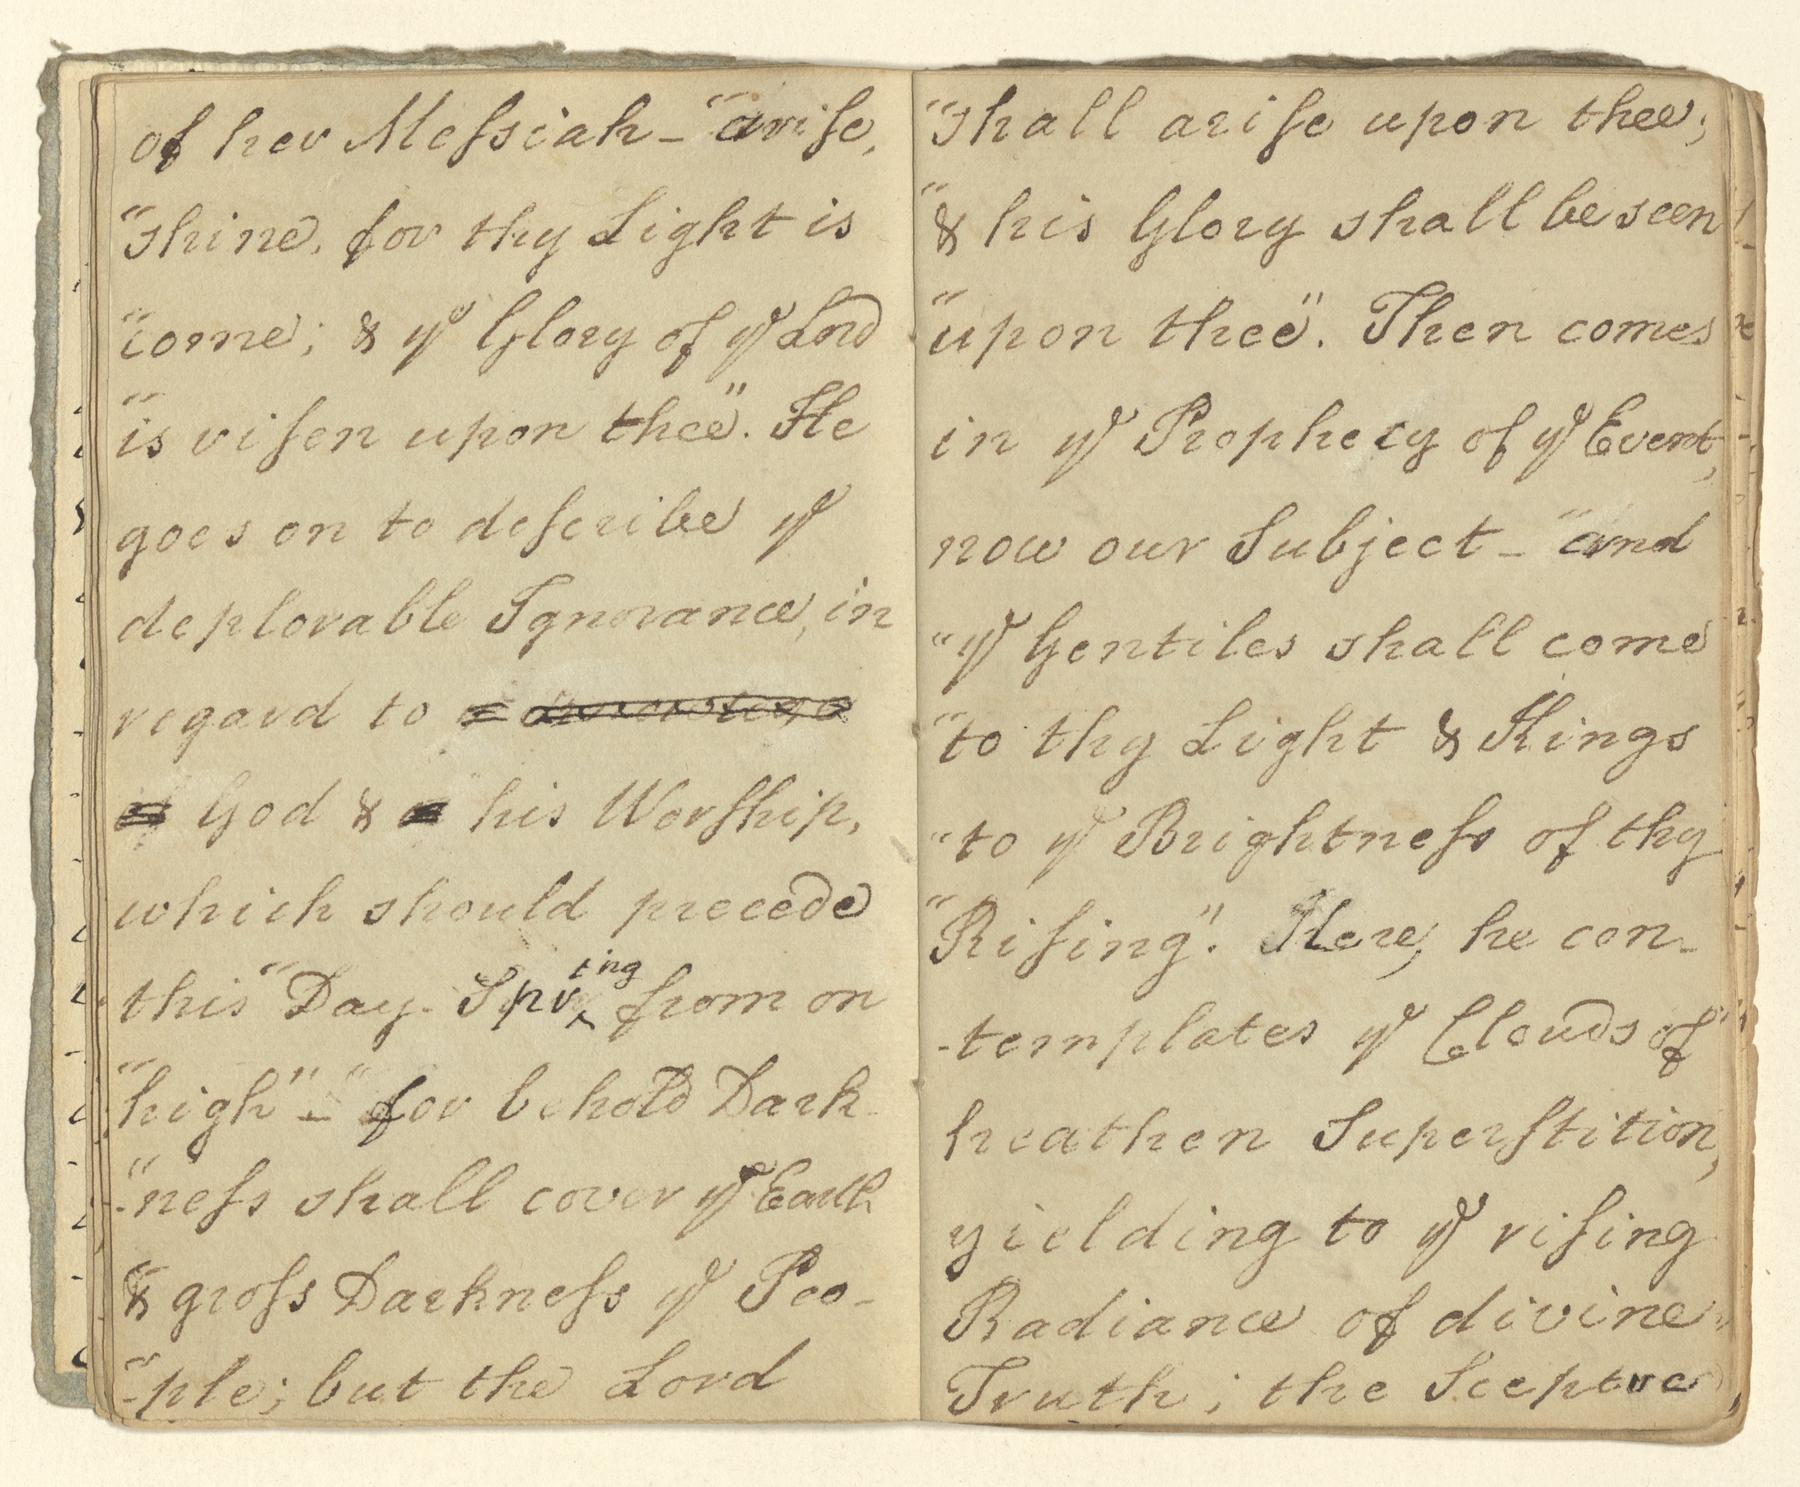 of her Meſsiah – "ariſe,
"shine, for thy Light is
"come; & yᵉ Glory of yᵉ Lord
"is riſen upon thee". He
goes on to deſcribe yᵉ
deplorable Ignorance, in
regard to
God & his Worſhip,
which should precede
this "Day-Spring from on
"high" – "for behold Dark-
"-neſs shall cover yᵉ Earth
"& groſs Darkneſs yᵉ Peo-
"-ple; but the Lord
"shall ariſe upon thee;
"& his Glory shall be seen
"upon thee". Then comes
in yᵉ Prophecy of yᵉ Event,
now our Subject – "and
"yᵉ Gentiles shall come
"to thy Light & Kings
"to yᵉ Brightneſs of thy
"Riſing". Here, he con-
-templates yᵉ Clouds of
heathen Superſtition,
yielding to yᵉ riſing
Radiance of divine
Truth; the Sceptre